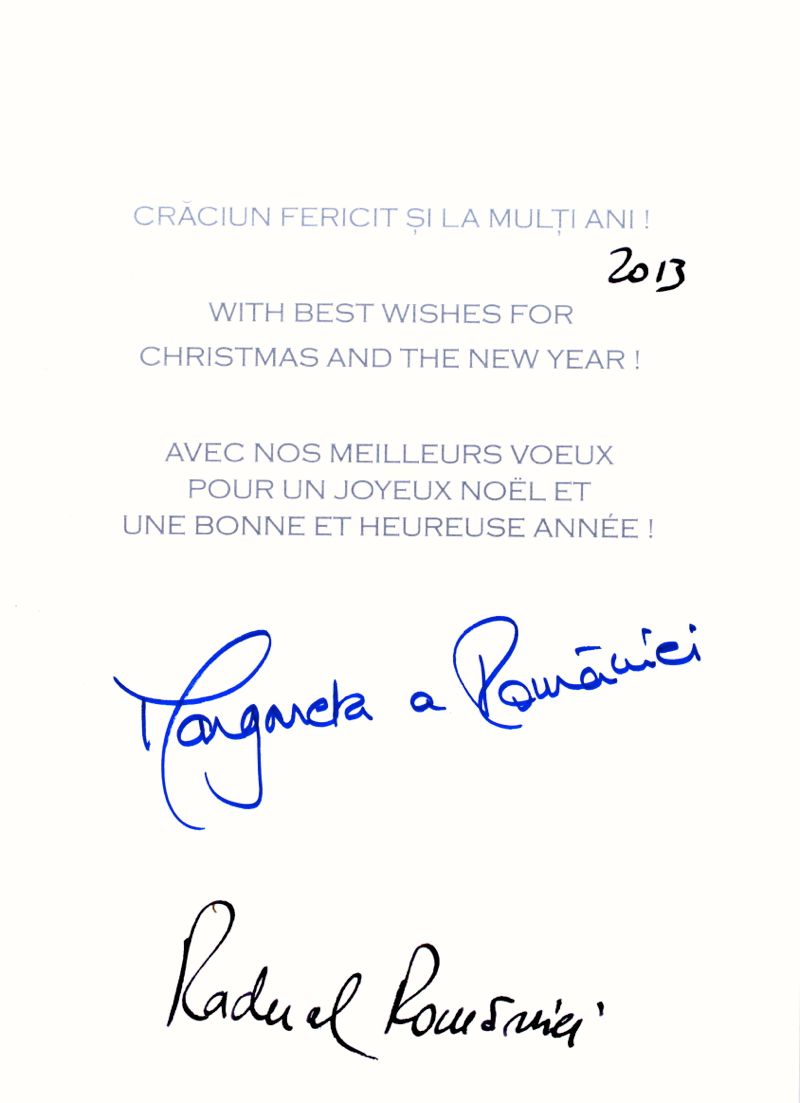 CRĂCIUN FERICIT ȘI LA MULȚI ANI !
2013
WITH BEST WISHES FOR
CHRISTMAS AND THE NEW YEAR !
AVEC NOS MEILLEURS VOEUX
POUR UN JOYEUX NOËL ET
UNE BONNE ET HEUREUSE ANNÉE !
Margareta a României
Radu al României